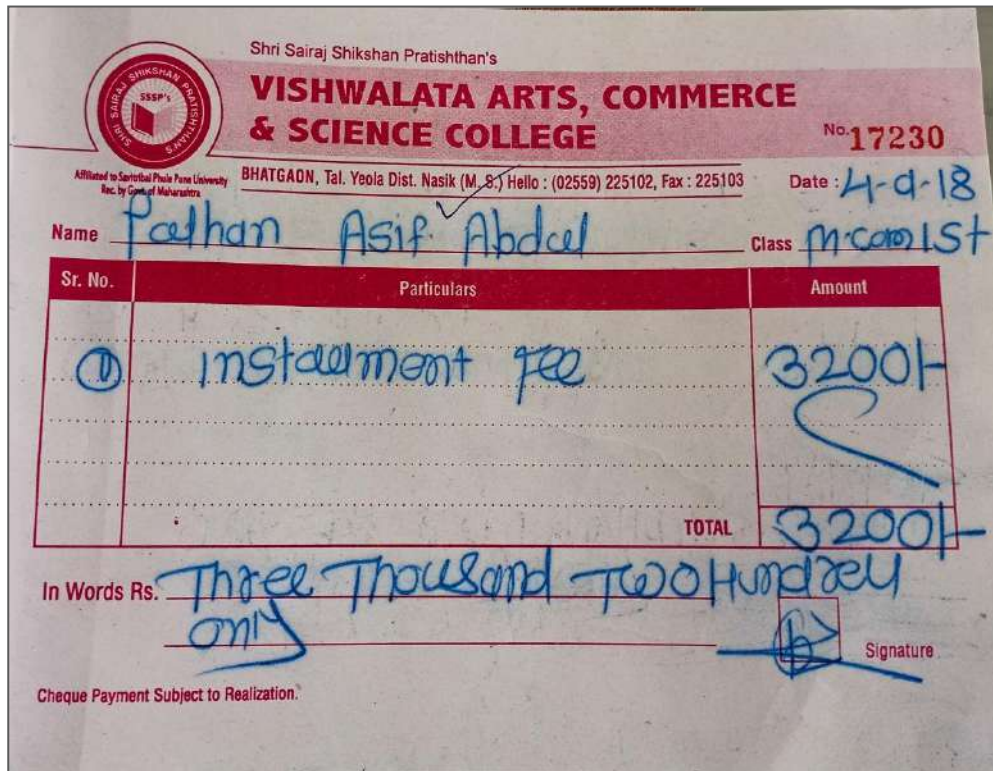 Shri Sairaj Shikshan Pratishthan's
VISHWALATA ARTS, COMMERCE
& SCIENCE COLLEGE
No. 17230
SHRI SAIRAJ SHIKSHAN PRATISHTHAN'S
SSSP's
Affiliated to Savitribai Phule Pune University
Rec. by Govt. of Maharashtra
BHATGAON, Tal. Yeola Dist. Nasik (M. S.) Hello : (02559) 225102, Fax : 225103
Date : 4-9-18
Name Pathan Asif Abdul
Class M.com 1st
Sr. No. Particulars Amount
① installment fee 3200/-
TOTAL 3200/-
In Words Rs. Three Thousand Two Hundred
only
Signature
Cheque Payment Subject to Realization.